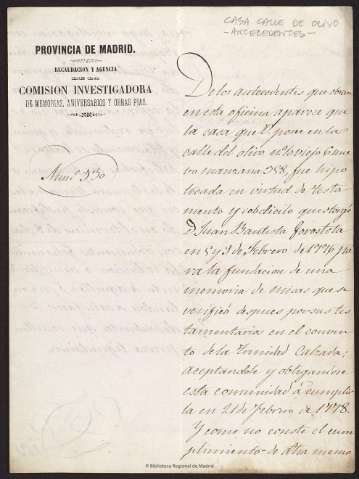 CASA CALLE DE OLIVO
-ANTECEDENTES-
PROVINCIA DE MADRID.
RECAUDACION Y AGENCIA
COMISION INVESTIGADORA
DE MEMORIAS, ANIVERSARIOS Y OBRAS PIAS.
Num.º 330
De los antecedentes que obran
en esta oficina aparece que
la casa que V. posee en la
calle del olivo nº viejo 6 nue
manzana 358, fue hipo
tecada en virtud de testa
mento y codicilo que otorgó
D. Juan Bautista
en 5 y 9 de Febrero de 1776 pa
ra la fundacion de una
memoria de misas que se
verificó despues por sus tes
tamentarios en el conven
to de la Trinidad Calzada;
aceptandolo y obligandose
esta comunidad á cumplir
la en 21 de febrero de 1778.
Y como no conste el cum
plimiento de dha memo
© Biblioteca Regional de Madrid